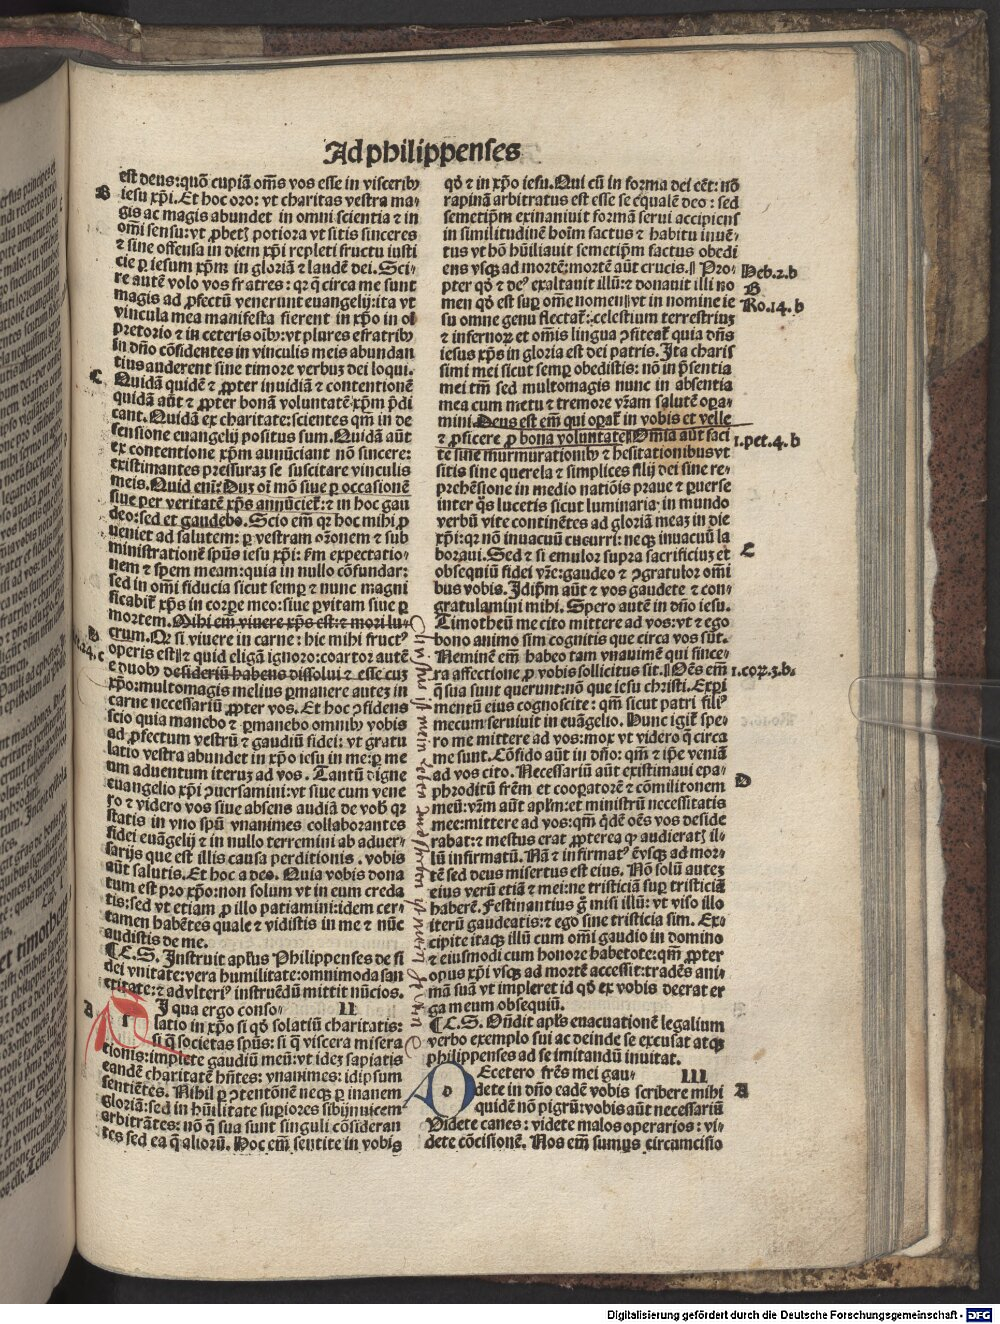 Ad philippenses
est deus: quō cupiā oēs vos esse in visceribꝰ
B
iesu xp̄i. Et hoc oro: vt charitas vestra ma-
gis ac magis abundet in omni scientia ⁊ in
om̄i sensu: vt ꝓbetꝭ potiora vt sitis sinceres
⁊ sine offensa in diem xp̄i repleti fructu iusti
cie ꝑ iesum xp̄m in gloriā ⁊ laudē dei. Sci-
re autē volo vos fratres: qꝛ q̄ circa me sunt
magis ad ꝓfectū venerunt euangelij: ita vt
vincula mea manifesta fierent in xp̄o in oī
pretorio ⁊ in ceteris oībꝰ: vt plures e fratribꝰ
in dn̄o cōfidentes in vinculis meis abundan
tius auderent sine timore verbuꝫ dei loqui.
C
Quidā quidē ⁊ ꝓpter inuidiā ⁊ contentionē
quidā aūt ⁊ ꝓpter bonā voluntatē xp̄m p̄di
cant. Quidā ex charitate: scientes qm̄ in de
fensione euangelij positus sum. Quidā aūt
ex contentione xp̄m annūciant nō sincere:
existimantes pressuraꝫ se suscitare vinculis
meis. Quid eni̅: Duꝫ oī mō siue ꝑ occasionē
siue per veritatē xp̄s annūciet̄: ⁊ in hoc gau
deo: sed et gaudebo. Scio em̄ qꝛ hoc mihi ꝓ
ueniet ad salutem: ꝑ vestram orōnem ⁊ sub
ministrationē spūs iesu xp̄i: ẜm expectatio-
nem ⁊ spem meam: quia in nullo cōfundar:
sed in omi fiducia sicut semꝑ ⁊ nunc magni
ficabit̄ xp̄s in corꝑe meo: siue ꝑ vitam siue ꝑ
mortem. Mihi em̄ viuere xp̄s est: ⁊ mori lu-
D
crum. Qꝛ si viuere in carne: hic mihi fructꝰ
operis est ⁊ quid eligā ignoro: coartor autē
e duobꝰ desideriū habens dissolui ⁊ esse cuꝫ
xp̄o: multomagis melius ꝑmanere auteꝫ in
carne necessariū ꝓpter vos. Et hoc ꝯfidens
scio quia manebo ⁊ ꝑmanebo omnibꝰ vobis
ad ꝓfectum vestrū ⁊ gaudiū fidei: vt gratu
latio vestra abundet in xp̄o iesu in me: ꝑ me
um aduentum iteruꝫ ad vos. Tantū digne
euangelio xp̄i ꝯuersamini: vt siue cum vene
ro ⁊ videro vos siue absens audiā de vob̄ qꝛ
statis in vno spū vnanimes collaborantes
fidei euāgelij ⁊ in nullo terremini ab aduer-
sarijs que est illis causa perditionis. vobis
aūt salutis. Et hoc a deo. Quia vobis dona
tum est pro xp̄o: non solum vt in eum creda
tis: sed vt etiam ꝓ illo patiamini: idem cer-
tamen habētes quale ⁊ vidistis in me ⁊ nūc
audistis de me.
¶ C.S. Instruit apl̄us Philippenses de si
dei vnitate: vera humilitate: omnimoda san
ctitate: ⁊ ad vlteriꝰ instruēdū mittit nūcios.
A
I qua ergo conso- II
latio in xp̄o si qd̄ solatiū charitatis:
si q̄ societas spūs: si q̄ viscera misera
tionis: implete gaudiū meū: vt ideꝫ sapiatis
eandē charitatē hn̄tes: vnanimes: idipsum
sentiētes. Nihil ꝑ ꝯtentōnē neqꝫ ꝑ inanem
gloriā: sed in hūilitate suꝑiores sibijnuicem
arbitrātes: nō q̄ sua sunt singuli cōsideran
tes sed ea q̄ alioꝝ. Hoc em̄ sentite in vobis
qd̄ ⁊ in xp̄o iesu. Qui cū in forma dei eēt: nō
rapinā arbitratus est esse se equalē deo: sed
semetip̄m exinaniuit formā serui accipiens
in similitudinē hoīm factus ⁊ habitu inuē-
tus vt hō hūiliauit semetip̄m factus obedi
ens vsqꝫ ad mortē: mortē aūt crucis. Pro-
Heb.2.b
pter qd̄ ⁊ deꝰ exaltauit illū: ⁊ donauit illi no
B
men qd̄ est suꝑ om̄e nomen vt in nomine ie
Ro.14.b
su omne genu flectat̄: celestium terrestriuꝫ
⁊ infernoꝝ et om̄is lingua ꝯfiteat̄ quia dn̄s
iesus xp̄s in gloria est dei patris. Ita charis
simi mei sicut semꝑ obedistis: nō in p̄sentia
mei tm̄ sed multomagis nunc in absentia
mea cum metu ⁊ tremore vr̄am salutē oꝑa-
mini. Deus est em̄ qui oꝑat̄ in vobis et velle
⁊ ꝓficere ꝓ bona voluntate. Om̄ia aūt faci
1.pet.4.b
te sine murmurationibꝰ ⁊ hesitationibus vt
sitis sine querela ⁊ simplices filij dei sine re-
prehēsione in medio natiōis praue ⁊ ꝑuerse
inter q̄s lucetis sicut luminaria in mundo
verbū vite continētes ad gloriā meaꝫ in die
xp̄i: qꝛ nō inuacuū cucurri: neqꝫ inuacuū la
boraui. Sed ⁊ si emulor supra sacrificiuꝫ et
C
obsequiū fidei vr̄e: gaudeo ⁊ ꝯgratulor om̄i
bus vobis. Idip̄m aūt ⁊ vos gaudete ⁊ con-
gratulamini mihi. Spero autē in dn̄o iesu.
Timotheū me cito mittere ad vos: vt ⁊ ego
bono animo sim cognitis que circa vos sūt.
Neminē em̄ habeo tam vnanimē qui since-
ra affectione ꝓ vobis sollicitus sit. Oēs em̄
1.cor.3.b.
q̄ sua sunt querunt: nō que iesu christi. Exꝑi
mentū eius cognoscite: qm̄ sicut patri filiꝰ
mecum seruiuit in euāgelio. Hunc igit̄ spe-
ro me mittere ad vos: mox vt videro q̄ circa
me sunt. Cōfido aūt in dn̄o: qm̄ ⁊ ip̄e veniā
ad vos cito. Necessariū aūt existimaui epa-
D
phroditū frēm et cooꝑatorē ⁊ cōmilitonem
meū: vr̄m aūt apl̄m: et ministrū necessitatis
mee: mittere ad vos: qm̄ qd̄ē oēs vos deside
rabat: ⁊ mestus erat ꝓpterea qꝫ audieratꝭ il-
lū infirmatū. Nā ⁊ infirmatꝰ ē vsqꝫ ad mor-
tē sed deus misertus est eius. Nō solū auteꝫ
eius verū etiā ⁊ mei: ne tristiciā suꝑ tristiciā
haberē. Festinantius ḡ misi illū: vt viso illo
iterū gaudeatis: ⁊ ego sine tristicia sim. Ex-
cipite itaqꝫ illū cum om̄i gaudio in domino
⁊ eiusmodi cum honore habetote: qm̄ ꝓpter
opus xp̄i vsqꝫ ad mortē accessit: tradēs ani-
mā suā vt impleret id qd̄ ex vobis deerat er
ga meum obsequiū.
¶ C.S. On̄dit apl̄s euacuationē legalium
verbo exemplo sui ac deinde se excusat atqꝫ
philippenses ad se imitandū inuitat.
D
Ecetero frēs mei gau- III
dete in dn̄o eadē vobis scribere mihi
A
quidē nō pigrū: vobis aūt necessariū
Videte canes: videte malos operarios: vi-
dete cōcisionē. Nos em̄ sumus circumcisio
Digitalisierung gefördert durch die Deutsche Forschungsgemeinschaft - DFG